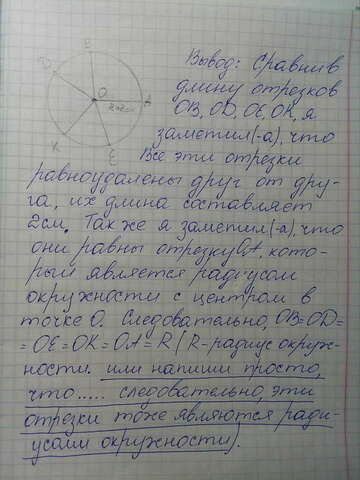 В
D
O
R=2см
A
K
E
Вывод: Сравнив
длину отрезков
OB, OD, OE, OK, я
заметил(-а), что
Все эти отрезки
равноудалены друг от дру-
га, их длина составляет
2см. Так же я заметил(-а), что
они равны отрезку OA, кото-
рый является радиусом
окружности с центром в
точке O. Следовательно, OB=OD=
=OE=OK=OA=R (R-радиус окруж-
ности. или напиши просто,
что ..... следовательно, эти
отрезки тоже являются ради-
усами окружности).